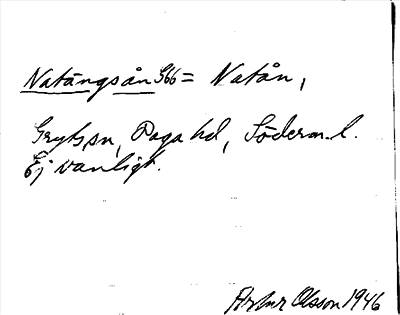 Natängsån G66 = Natån,
Gryts sn, Daga hd, Söderm. l.
Ej vanligt.
Artur Olsson 1946